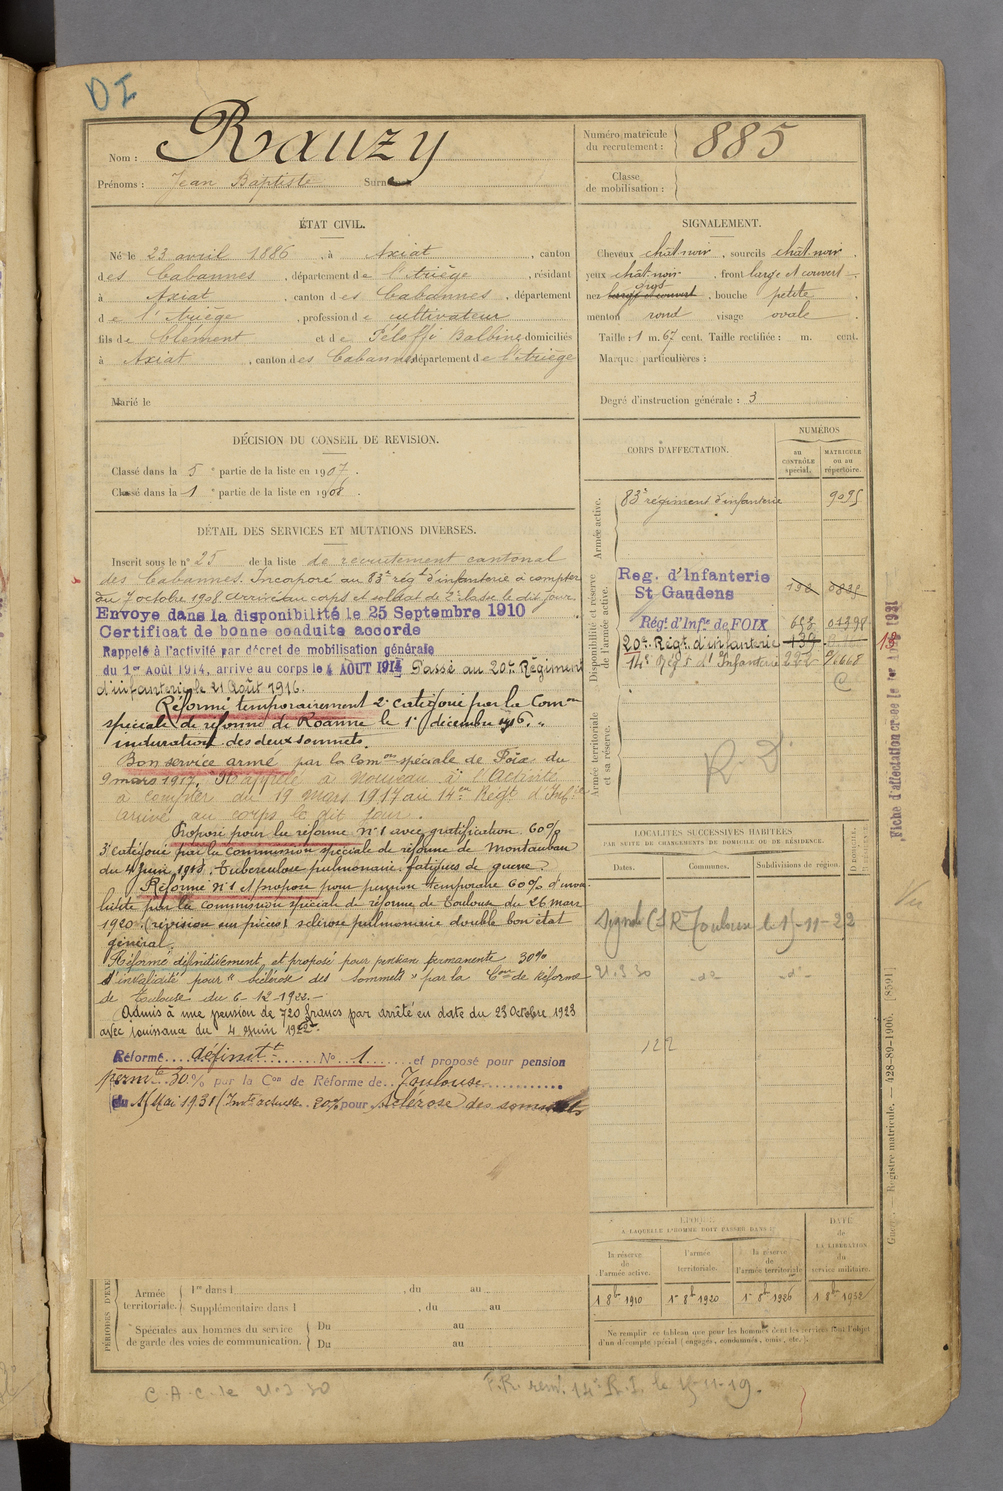 DI
Nom : Rauzy
Prénoms : Jean Baptiste Surnoms
Numéro matricule du recrutement : 885
Classe de mobilisation :
ÉTAT CIVIL.
Né le 23 avril 1886 , à Axiat , canton
des Cabannes , département de l'Ariège , résidant
à Axiat , canton des Cabannes , département
de l'Ariège , profession de cultivateur
fils de Clément et de Balbine domiciliés
à Axiat , canton des Cabannes département de l'Ariège
Marié le
SIGNALEMENT.
Cheveux chât noir , sourcils chât noir
yeux chât noir , front large et couvert
nez gros , bouche petite
menton rond visage ovale
Taille : 1 m. 67 cent. Taille rectifiée : m. cent.
Marques particulières :
Degré d'instruction générale : 3
DÉCISION DU CONSEIL DE REVISION.
Classé dans la 5e partie de la liste en 1907.
Classé dans la 1e partie de la liste en 1908.
DÉTAIL DES SERVICES ET MUTATIONS DIVERSES.
Inscrit sous le n° 25 de la liste de recrutement cantonal
des Cabannes. Incorporé au 83e régt d'infanterie à compter
du 7 octobre 1908 arrivé au corps et soldat de 2e classe le dit jour.
Envoye dans la disponibilité le 25 Septembre 1910
Certificat de bonne conduite accorde
Rappelé à l'activité par décret de mobilisation générale
du 1er Août 1914, arrive au corps le 4 AOUT 1914 Passé au 20me Régiment
d'infanterie le 21 Août 1916.
Réformé temporairement 2e catégorie par la Comon
spéciale de réforme de Roanne le 1er décembre 1916. "
induration des deux sommets.
Bon service armé par la Comon spéciale de Foix du
9 mars 1917. Rappelé à nouveau à l'activité
à compter du 19 Mars 1917 au 14me Régt d'Infie
arrivé au corps le dit jour.
Proposé pour la réforme n° 1 avec gratification 60%
3e catégorie par la Commission spéciale de réforme de Montauban
du 4 juin 1918. Tuberculose pulmonaire fatigues de guerre.
Réformé n° 1 et proposé pour pension temporaire 60% d'inva
lidité par la Commission spéciale de réforme de Toulouse du 26 mars
1920. (révision sur pièces) sclérose pulmonaire double bon état
général.
Réformé définitivement et proposé pour pension permanente 30%
d'invalidité pour " Sclérose des Sommets " par la Con de Réforme
de Toulouse du 6-12-1922.-
Admis à une pension de 720 francs par arrêté en date du 23 Octobre 1923
avec jouissance du 4 Juin 1922.
Réformé définitt N° 1 et proposé pour pension
permte 30 % par la Con de Réforme de Toulouse
du Mai 1931 pour Sclérose des sommets
CORPS D'AFFECTATION.
NUMÉROS
au CONTRÔLE spécial.
MATRICULE ou au répertoire.
Armée active.
83e régiment d'infanterie 9095
Disponibilité et réserve de l'armée active.
Reg. d'Infanterie
St Gaudens
Régt. d'Infie de FOIX
20me Régt. d'infanterie 139
14e Régt d'Infanterie
Armée territoriale et sa réserve.
R.D.
Fiche d'affectation créée le 1er 1931
LOCALITÉS SUCCESSIVES HABITÉES
PAR SUITE DE CHANGEMENTS DE DOMICILE OU DE RÉSIDENCE.
Dates. Communes. Subdivisions de région. D DOMICILE.
Signalé CSR Toulouse le 15-11-22
21.3.30 -d°- -d°-
122
Vu
ÉPOQUE
A LAQUELLE L'HOMME DOIT PASSER DANS :
la réserve de l'armée active.
l'armée territoriale.
la réserve de l'armée territoriale
DATE de LA LIBÉRATION du service militaire.
1 8bre 1910 1er 8bre 1920 1er 8bre 1926 1 8bre 1932
Ne remplir ce tableau que pour les hommes dont les services font l'objet
d'un décompte spécial (engagés, condamnés, omis, etc.).
PÉRIODES D'EXE
Armée territoriale. 1re dans l , du au .
Supplémentaire dans l , du au
Spéciales aux hommes du service de garde des voies de communication. Du au
Du au
Registre matricule. — 428-89-1906. [8591]
C.A.C. le 21.3.30
F.R. renv. 14e R.I. le 15-11-19.